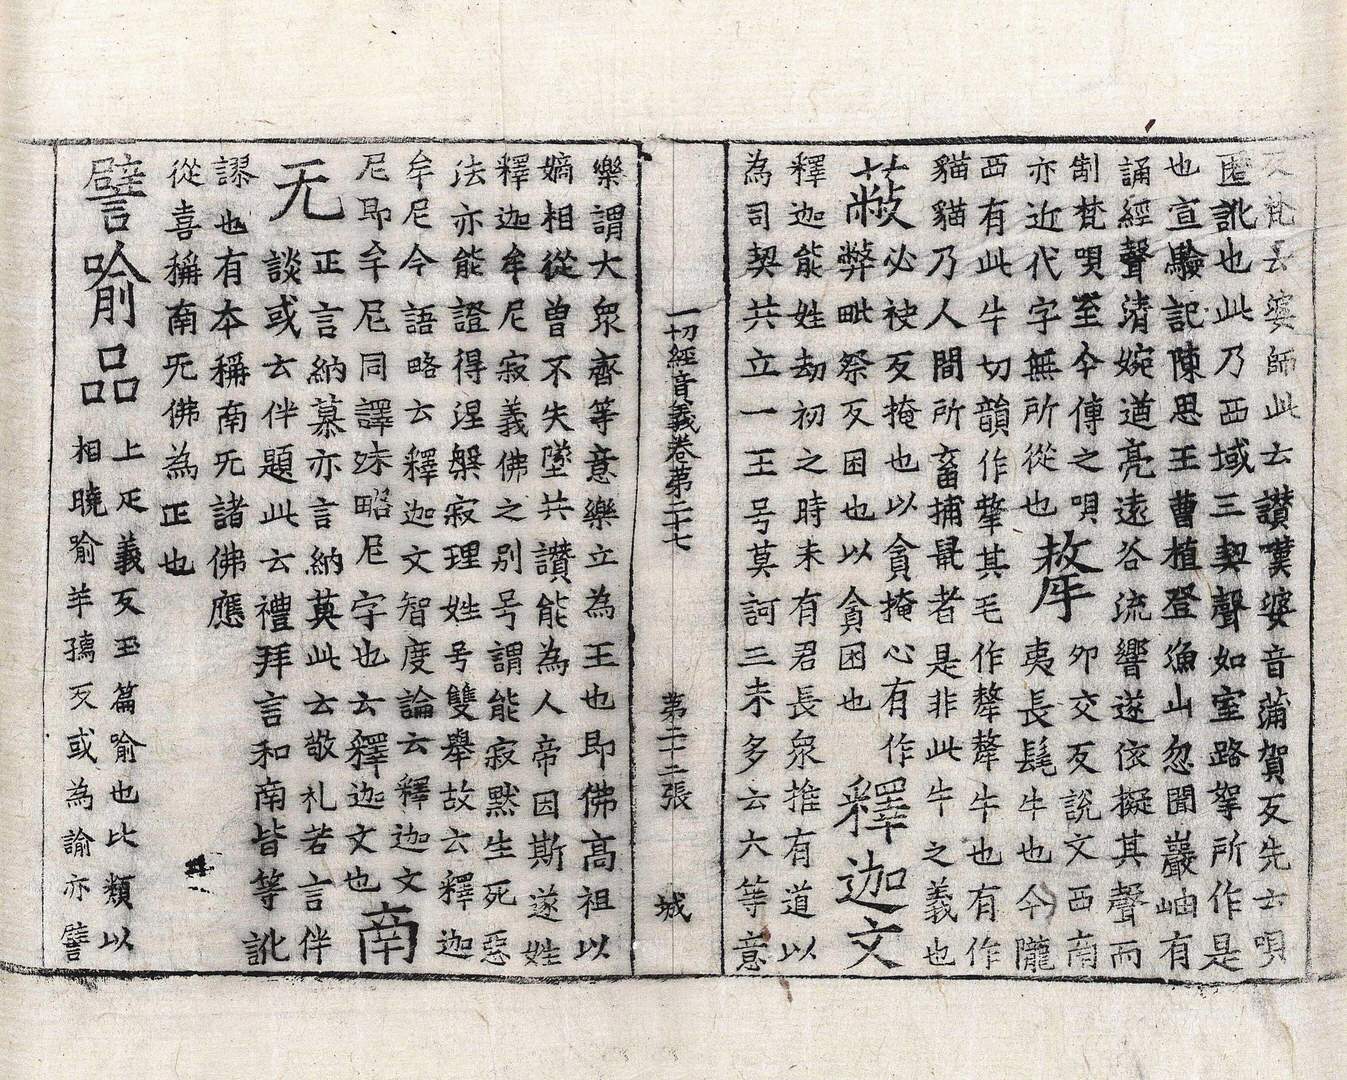 又梵云婆師此云讚嘆婆音蒲賀反先云唄
匿訛也此乃西域三契聲如室路拏所作是
也宣驗記陳思王曹植登漁山忽聞巖岫有
誦經聲清婉遒亮遠谷流響遂依擬其聲而
制梵唄至今傳之唄
亦近代字無所從也
犛
夘交反説文西南
夷長髦牛也今隴
西有此牛切韻作犛其毛作氂犛牛也有作
貓貓乃人間所畜捕鼠者是非此牛之義也
蔽
必袂反掩也以貪掩心有作
弊毗祭反困也以貪困也
釋迦文
釋迦能姓劫初之時未有君長衆推有道以
為司契共立一王号莫訶三末多云六等意
一切經音義卷第二十七 第二十二張 城
樂謂大衆齊等意樂立為王也即佛高祖以
嫡相從曾不失墜共讚能為人帝因斯遂姓
釋迦牟尼寂義佛之别号謂能寂默生死惡
法亦能證得涅槃寂理姓号雙舉故云釋迦
牟尼今語略云釋迦文智度論云釋迦文
尼即牟尼同譯殊略尼字也云釋迦文也
南
无
正言納慕亦言納莫此云敬礼若言伴
談或云伴題此云禮拜言和南皆等訛
謬也有本稱南旡諸佛應
從喜稱南旡佛為正也
譬喻品
上疋義反玉篇喻也比類以
相曉喻羊孺反或為諭亦譬